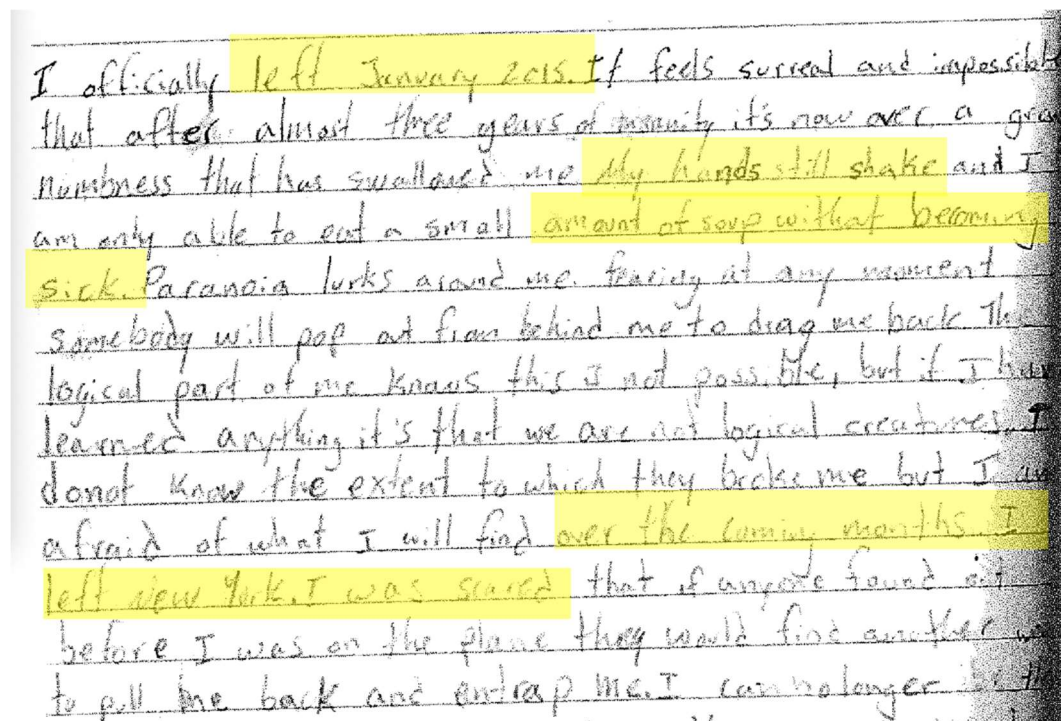 I officially left January 2015. It feels surreal and impossible
that after almost three years of insanity it's now over, a
numbness that has swallowed me. My hands still shake and I
am only able to eat a small amount of soup without becoming
sick. Paranoia lurks around me. fearing at any moment
somebody will pop out from behind me to drag me back. The
logical part of me knows this is not possible, but if I have
learned anything it's that we are not logical creatures. I
do not know the extent to which they broke me but I am
afraid of what I will find over the coming months. I
left New York. I was scared that if anyone found out
before I was on the plane they would find another
to pull me back and entrap me. I can no longer